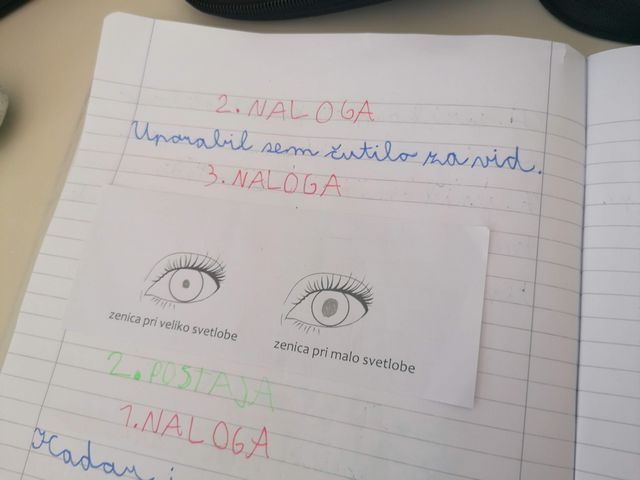 2. NALOGA
Uporabil sem čutilo za vid.
3. NALOGA
zenica pri veliko svetlobe
zenica pri malo svetlobe
2. POSTAJA
1. NALOGA
Kadar